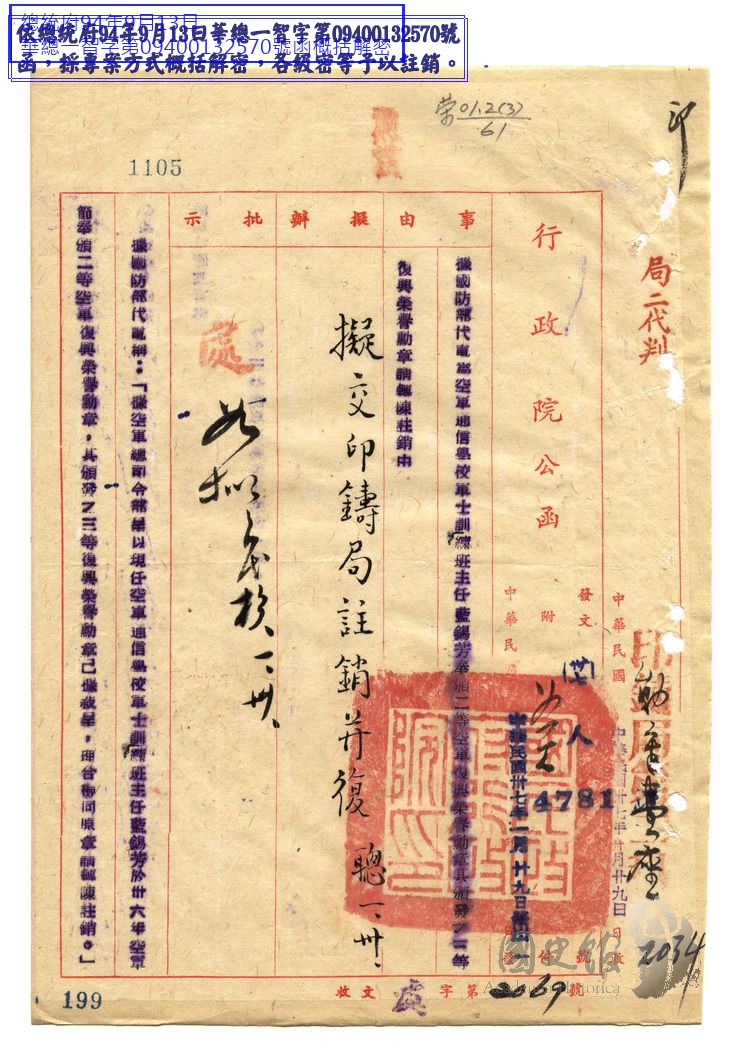 總統府94年9月13日
華總一智字第09400132570號函概括解密
依總統府94年9月13日華總一智字第09400132570號
函，採專案方式概括解密，各級密等予以註銷。
01.2(3)
61
1105
印
局二代判
行政院公函
中華民國
發文
附
人
4781
中華民國卅七年一月廿九日
2034
事由
據國防部代電為空軍通信學校軍士訓練班主任藍錫芳奉頒二等空軍復興榮譽勳章其頒發之三等
復興榮譽勳章請轉陳註銷由
擬辦
擬交印鑄局註銷并復
批示
處
如擬
據國防部代電稱：「據空軍總司令部呈以現任空軍通信學校軍士訓練班主任藍錫芳於卅六年空軍
節奉頒二等空軍復興榮譽勳章，其頒發之三等復興榮譽勳章已繳裁呈，理合檢同原章請轉陳註銷。」
國史館
Academia Historica
收文
字第2069號
199